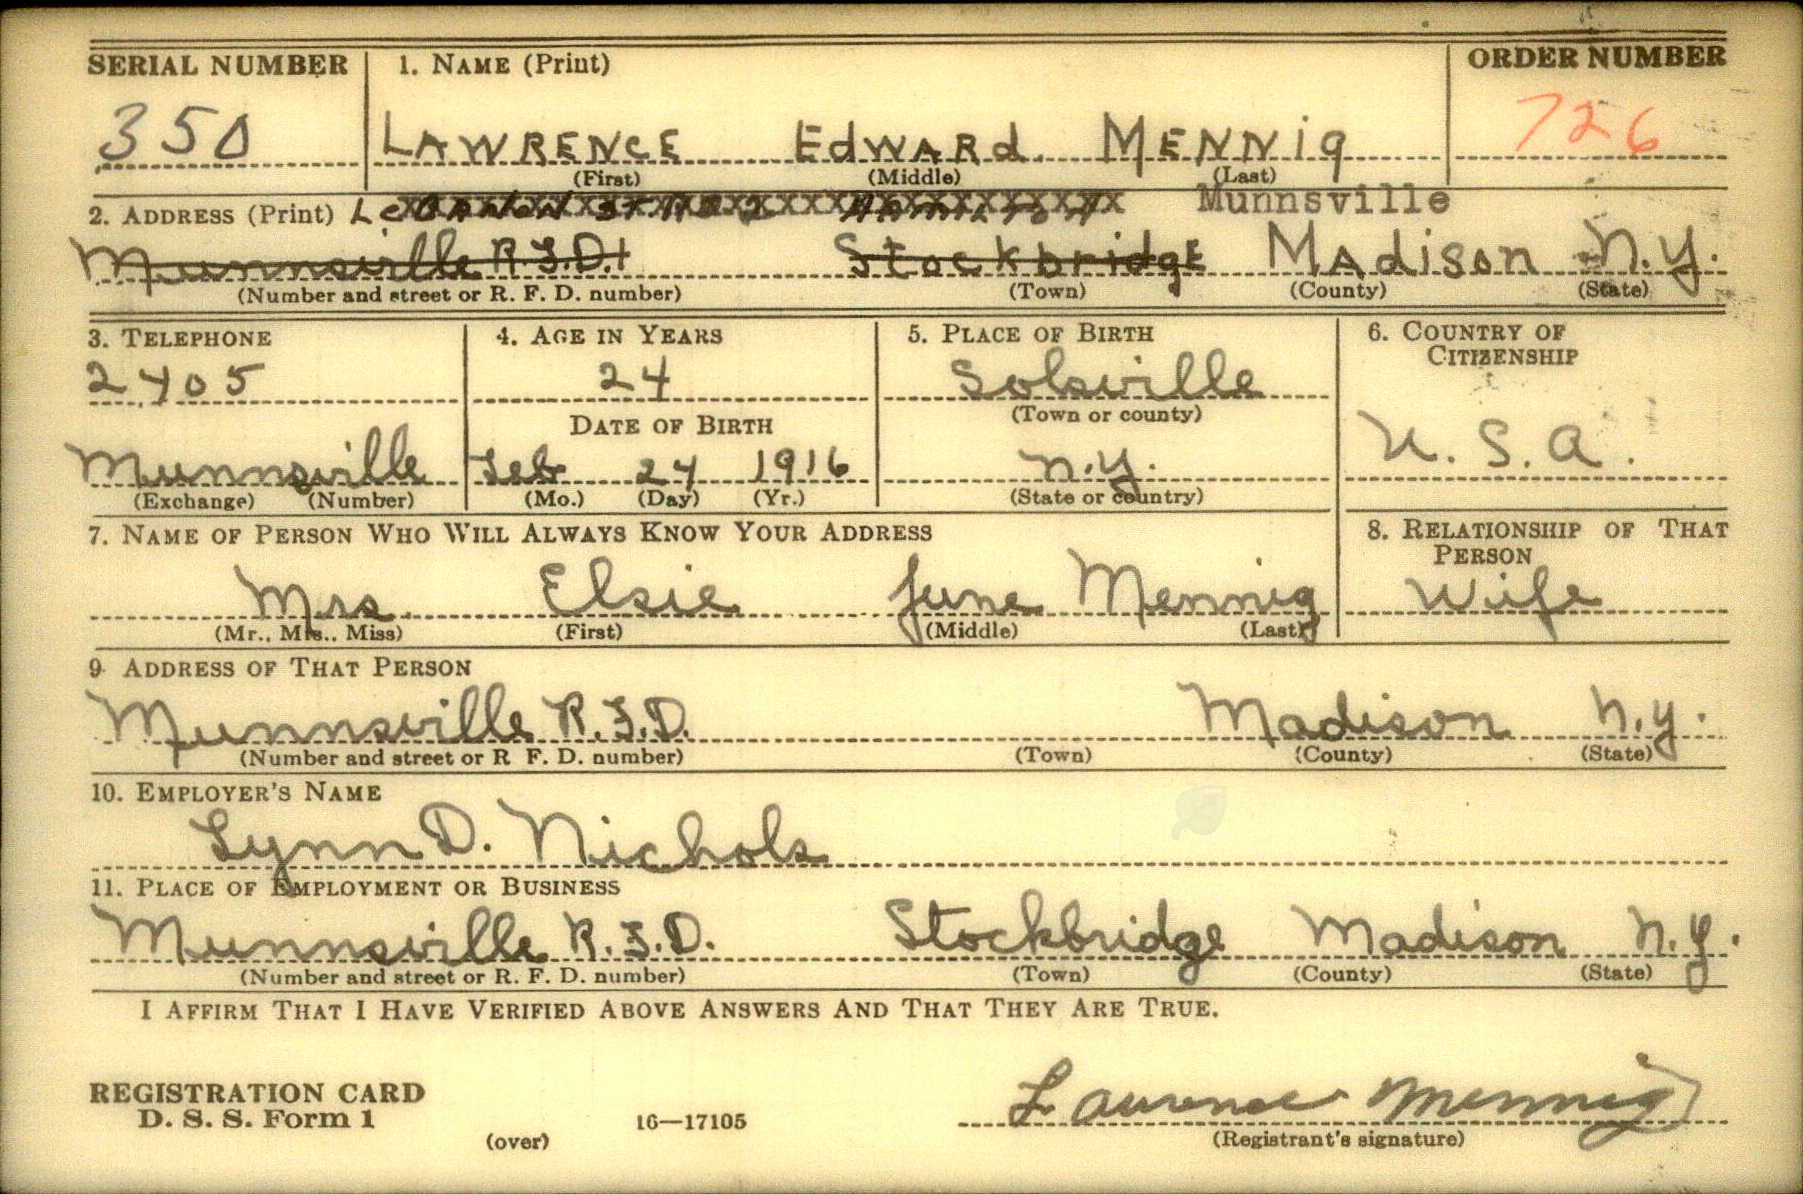 SERIAL NUMBER 1. NAME (Print) ORDER NUMBER
350 LAWRENCE EdWARd MENNig 726
(First) (Middle) (Last)
2. ADDRESS (Print) Munnsville
Munnsville R.F.D.1 Stockbridge MAdison N.Y.
(Number and street or R. F. D. number) (Town) (County) (State)
3. TELEPHONE 4. AGE IN YEARS 5. PLACE OF BIRTH 6. COUNTRY OF CITIZENSHIP
24 Solsville
DATE OF BIRTH (Town or county)
Munnsville Feb 24 1916 N.Y. U.S.A.
(Exchange) (Number) (Mo.) (Day) (Yr.) (State or country)
7. NAME OF PERSON WHO WILL ALWAYS KNOW YOUR ADDRESS 8. RELATIONSHIP OF THAT PERSON
Mrs. Elsie June Mennig Wife
(Mr., Mrs., Miss) (First) (Middle) (Last)
9. ADDRESS OF THAT PERSON
Munnsville R.F.D. Madison N.Y.
(Number and street or R. F. D. number) (Town) (County) (State)
10. EMPLOYER'S NAME
Lynn D. Nichols
11. PLACE OF EMPLOYMENT OR BUSINESS
Munnsville R.F.D. Stockbridge Madison N.Y.
(Number and street or R. F. D. number) (Town) (County) (State)
I AFFIRM THAT I HAVE VERIFIED ABOVE ANSWERS AND THAT THEY ARE TRUE.
REGISTRATION CARD
D. S. S. Form 1 16—17105 Lawrence Mennig
(over) (Registrant's signature)